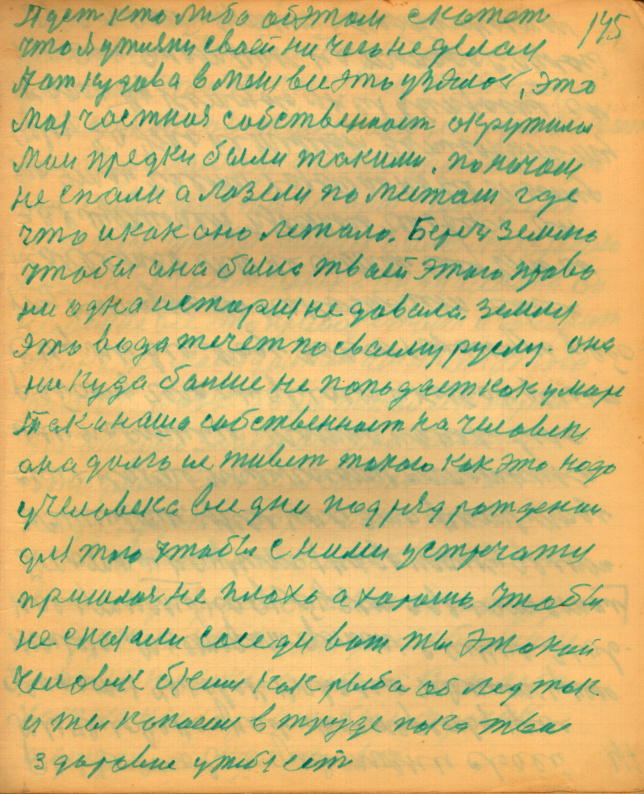 Пуст кто либо об этом скажет 145
что я утяяни своей ни чего не делаю
А откудова в меня все это взялос, это
моя частная собственност окружила
мои предки были такими, по ночам
не спали а лазели по местам где
что и как оно летало. Беречь землю
чтобы она была твоей этого право
ни одна история не давала. Земля
это вода течет по своему руслу. она
ни куда больше не попадает как у море
Так и наша собственност на человеке
она долго живет такого как это надо
у человека все дни подряд рождении
для того чтобы с ними устречатся
пришлося не плохо а хорошо чтобы
не сказали соседи вот ты этакой
человек бъеш как рыба об лед так
и ты копаеш в труде пока твае
здоровие у тебя ест